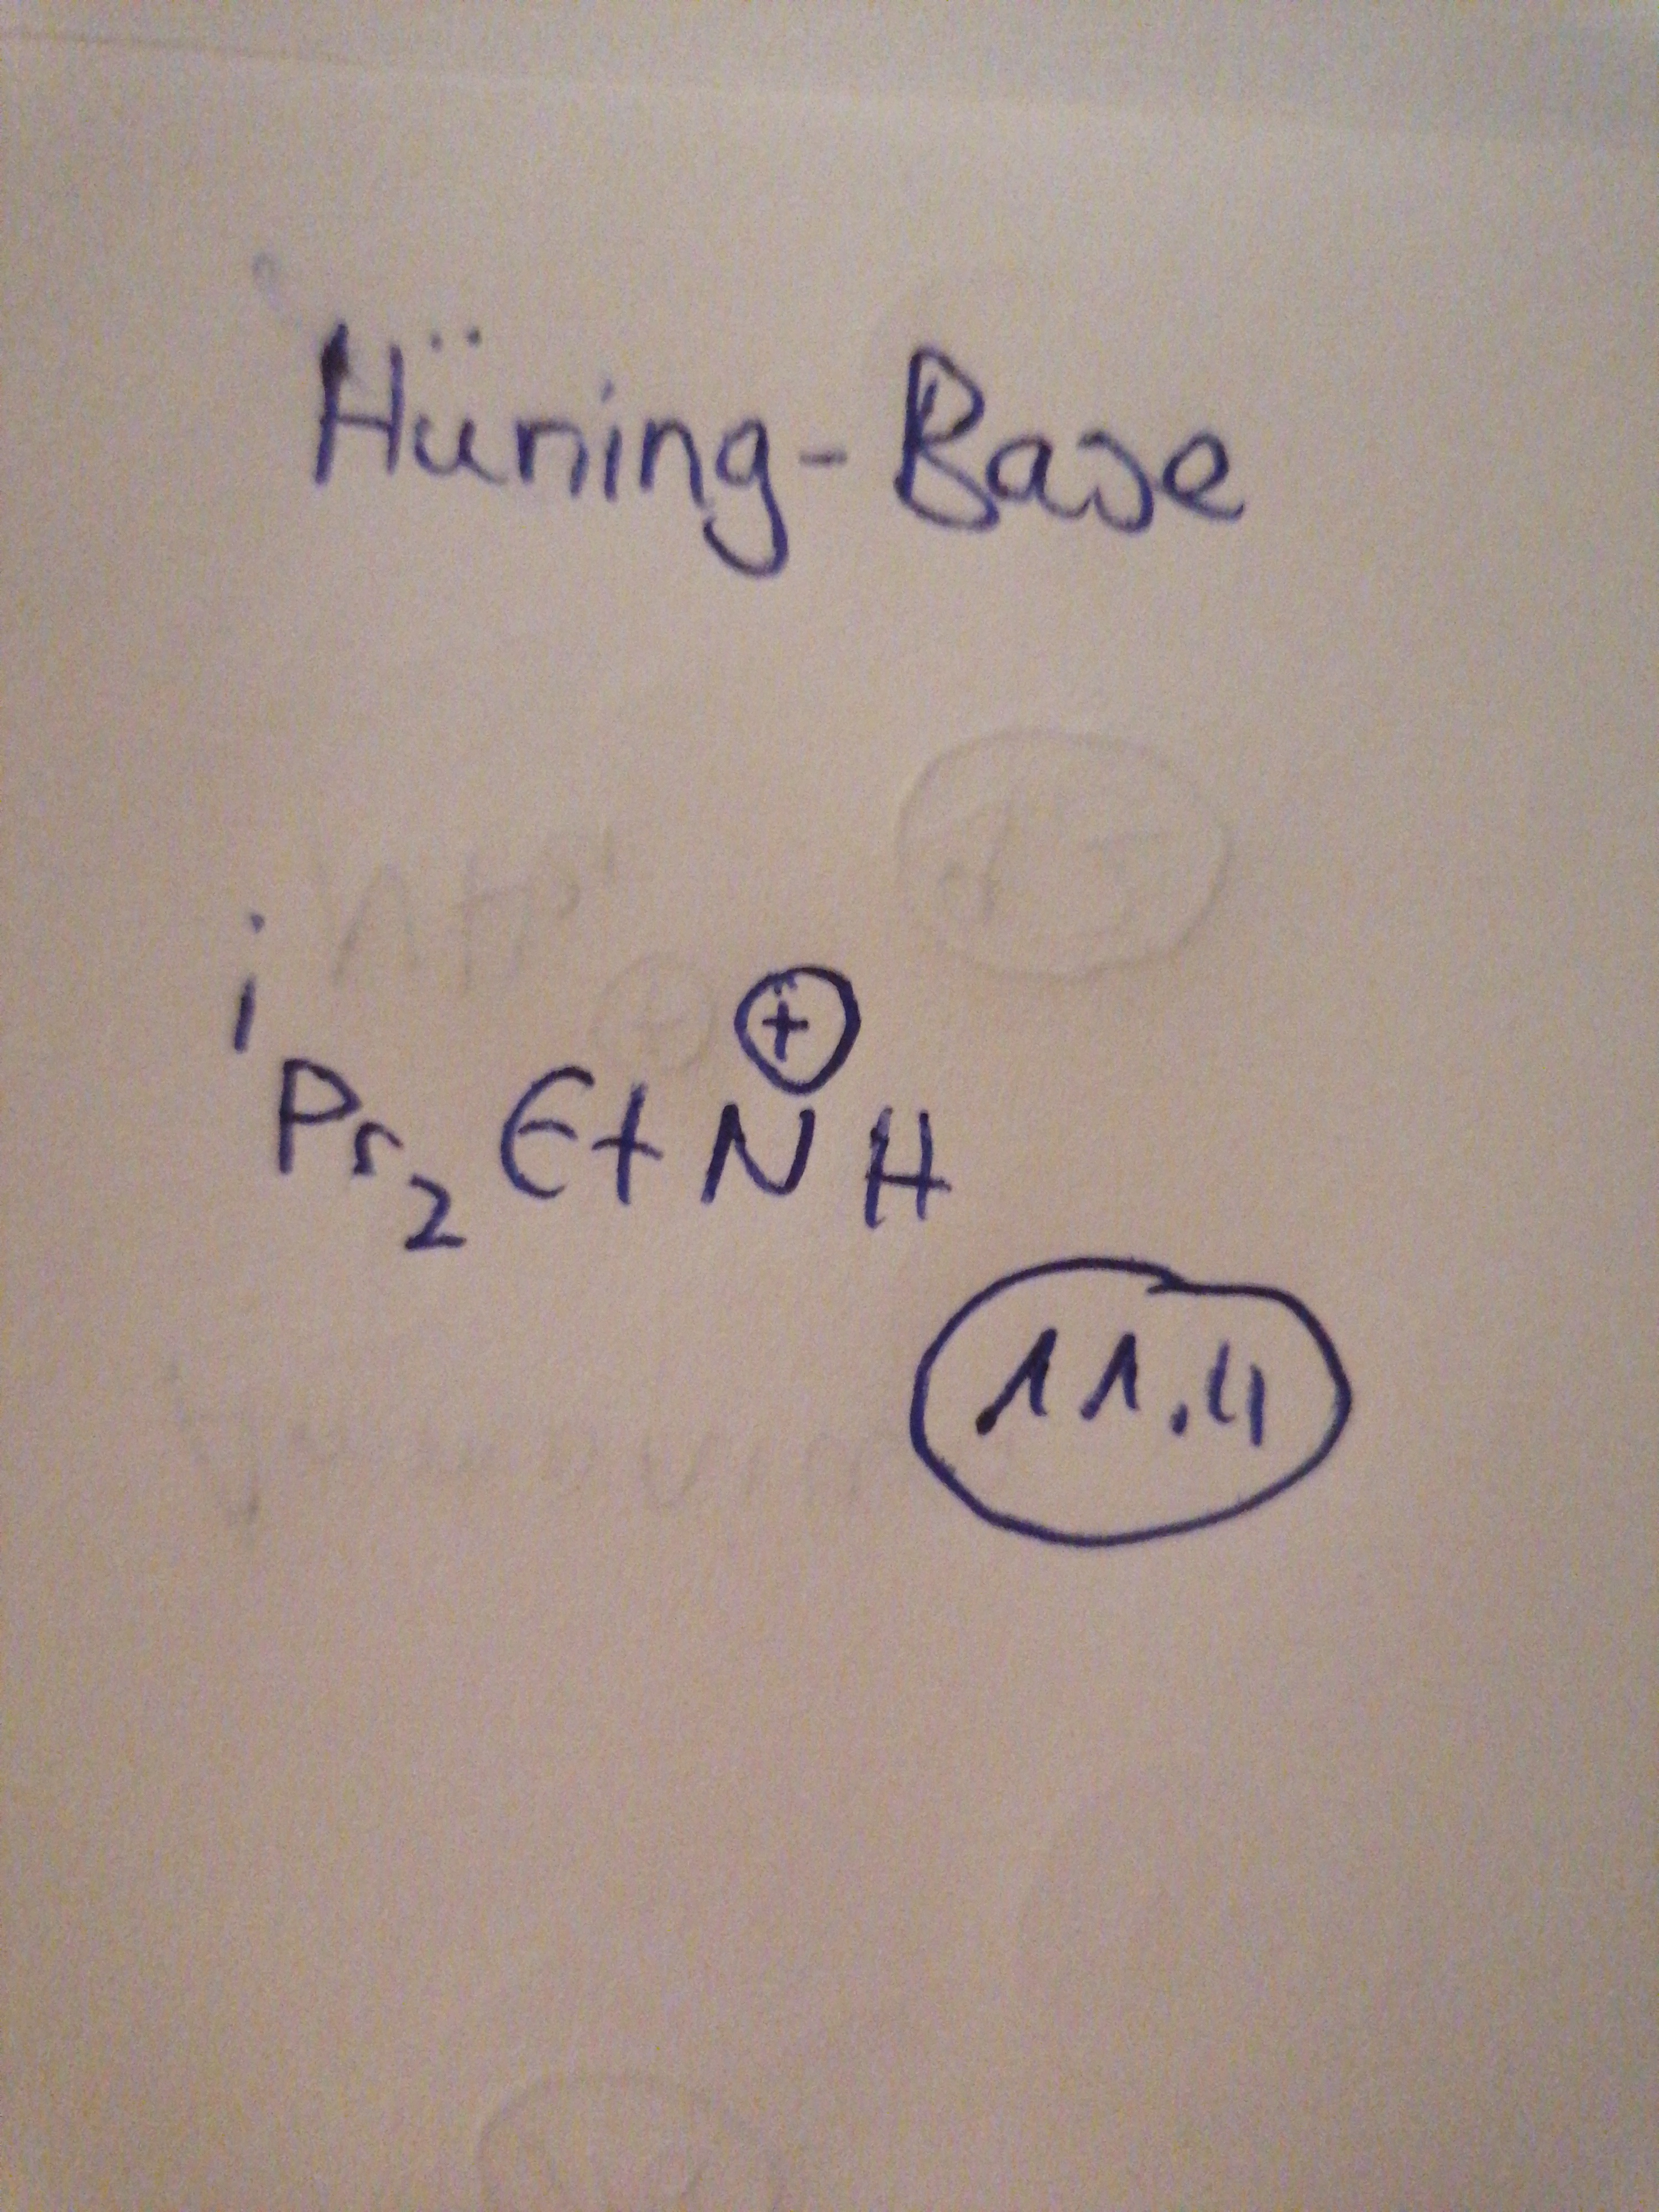 Hüning-Base
iPr₂EtN⊕H
11.4